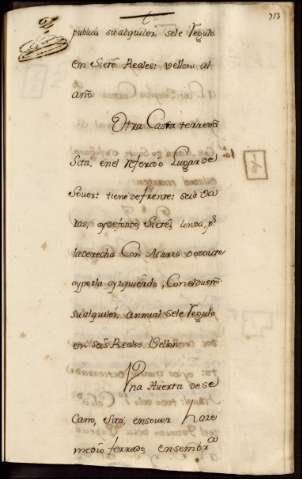 313
publica su alquiler se le Regulo
en Siete Reales: Vellon al
año
Otra Casa terrena
Sita, en el referido Lugar de
Souer: tiene de frente: seis Va
ras, y de fondo, Siete, linda, pr
la derecha Con
y por la izquierda, Con
su alquiler, annual se le Regulo
en seis Reales Vellon
Vna Huerta de Se
Cano, Sita, en Souer haze
medio ferrado, en sembra